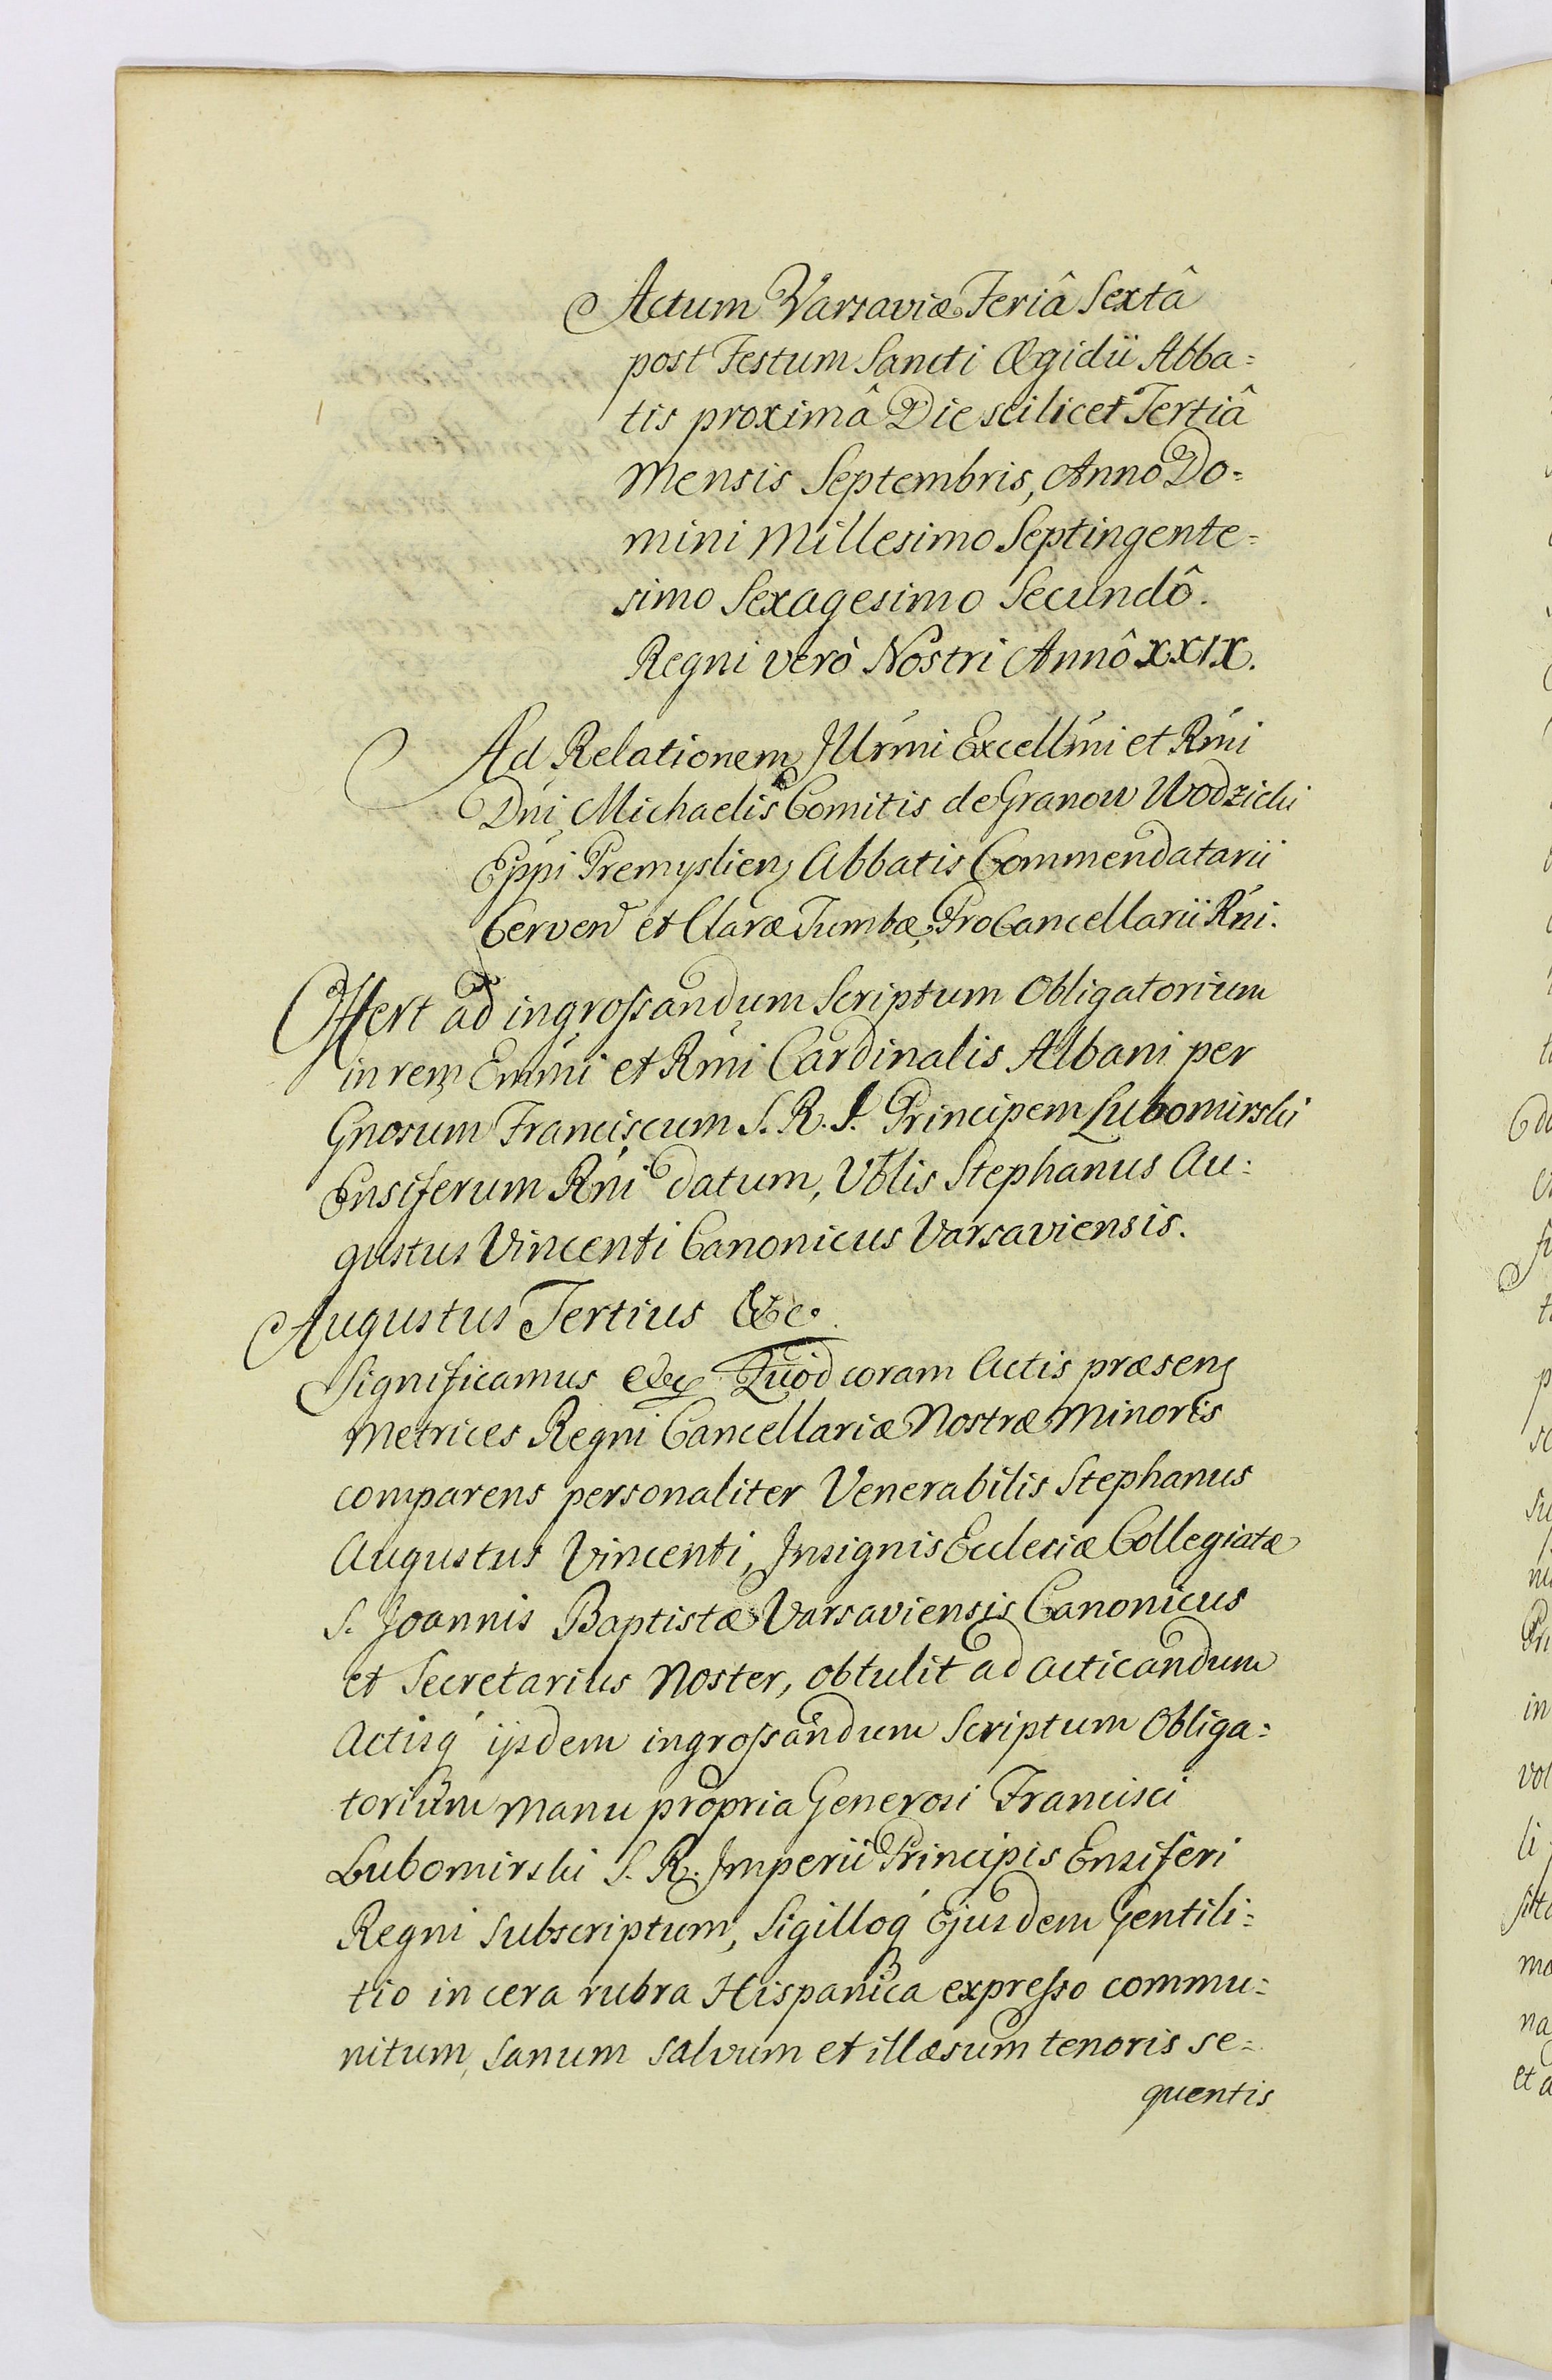 Actum Varsaviæ Feriâ Sextâ
post Festum Sancti Ægidii Abba=
tis proximâ Die scilicet Tertiâ
Mensis Septembris, Anno Do=
mini Millesimo Septingente=
simo Sexagesimo Secundô.
Regni verò Nostri Annô XXIX.
Ad Relationem Illrmi Excellmi et Rmi
Dni Michaelis Comitis de Granow Wodzicki
Eppi Premyslien Abbatis Commendatarii
Cerven et Claræ Tumbæ, ProCancellarii Rni.
Offert ad ingrossandum Scriptum Obligatorium
in rem Emmi et Rmi Cardinalis Albani per
Gnosum Franciscum S. R. I. Principem Lubomirski
Ensiferum Rni datum, Vblis Stephanus Au=
gustus Vincenti Canonicus Varsaviensis.
Augustus Tertius &c.
Significamus &c Quod coram Actis præsen
Metrices Regni Cancellariæ Nostræ Minoris
comparens personaliter Venerabilis Stephanus
Augustus Vincenti, Insignis Ecclesiæ Collegiatæ
S. Joannis Baptistæ Varsaviensis Canonicus
et Secretarius Noster, obtulit ad acticandum
Actisq́ ijsdem ingrossandum Scriptum Obliga=
torium manu propria Generosi Francisci
Lubomirski S. R. Imperii Principis Ensiferi
Regni subscriptum, Sigilloq́ Ejusdem Gentili=
tio in cera rubra Hispanica expresso commu=
nitum, sanum salvum et illæsum tenoris se=
quentis